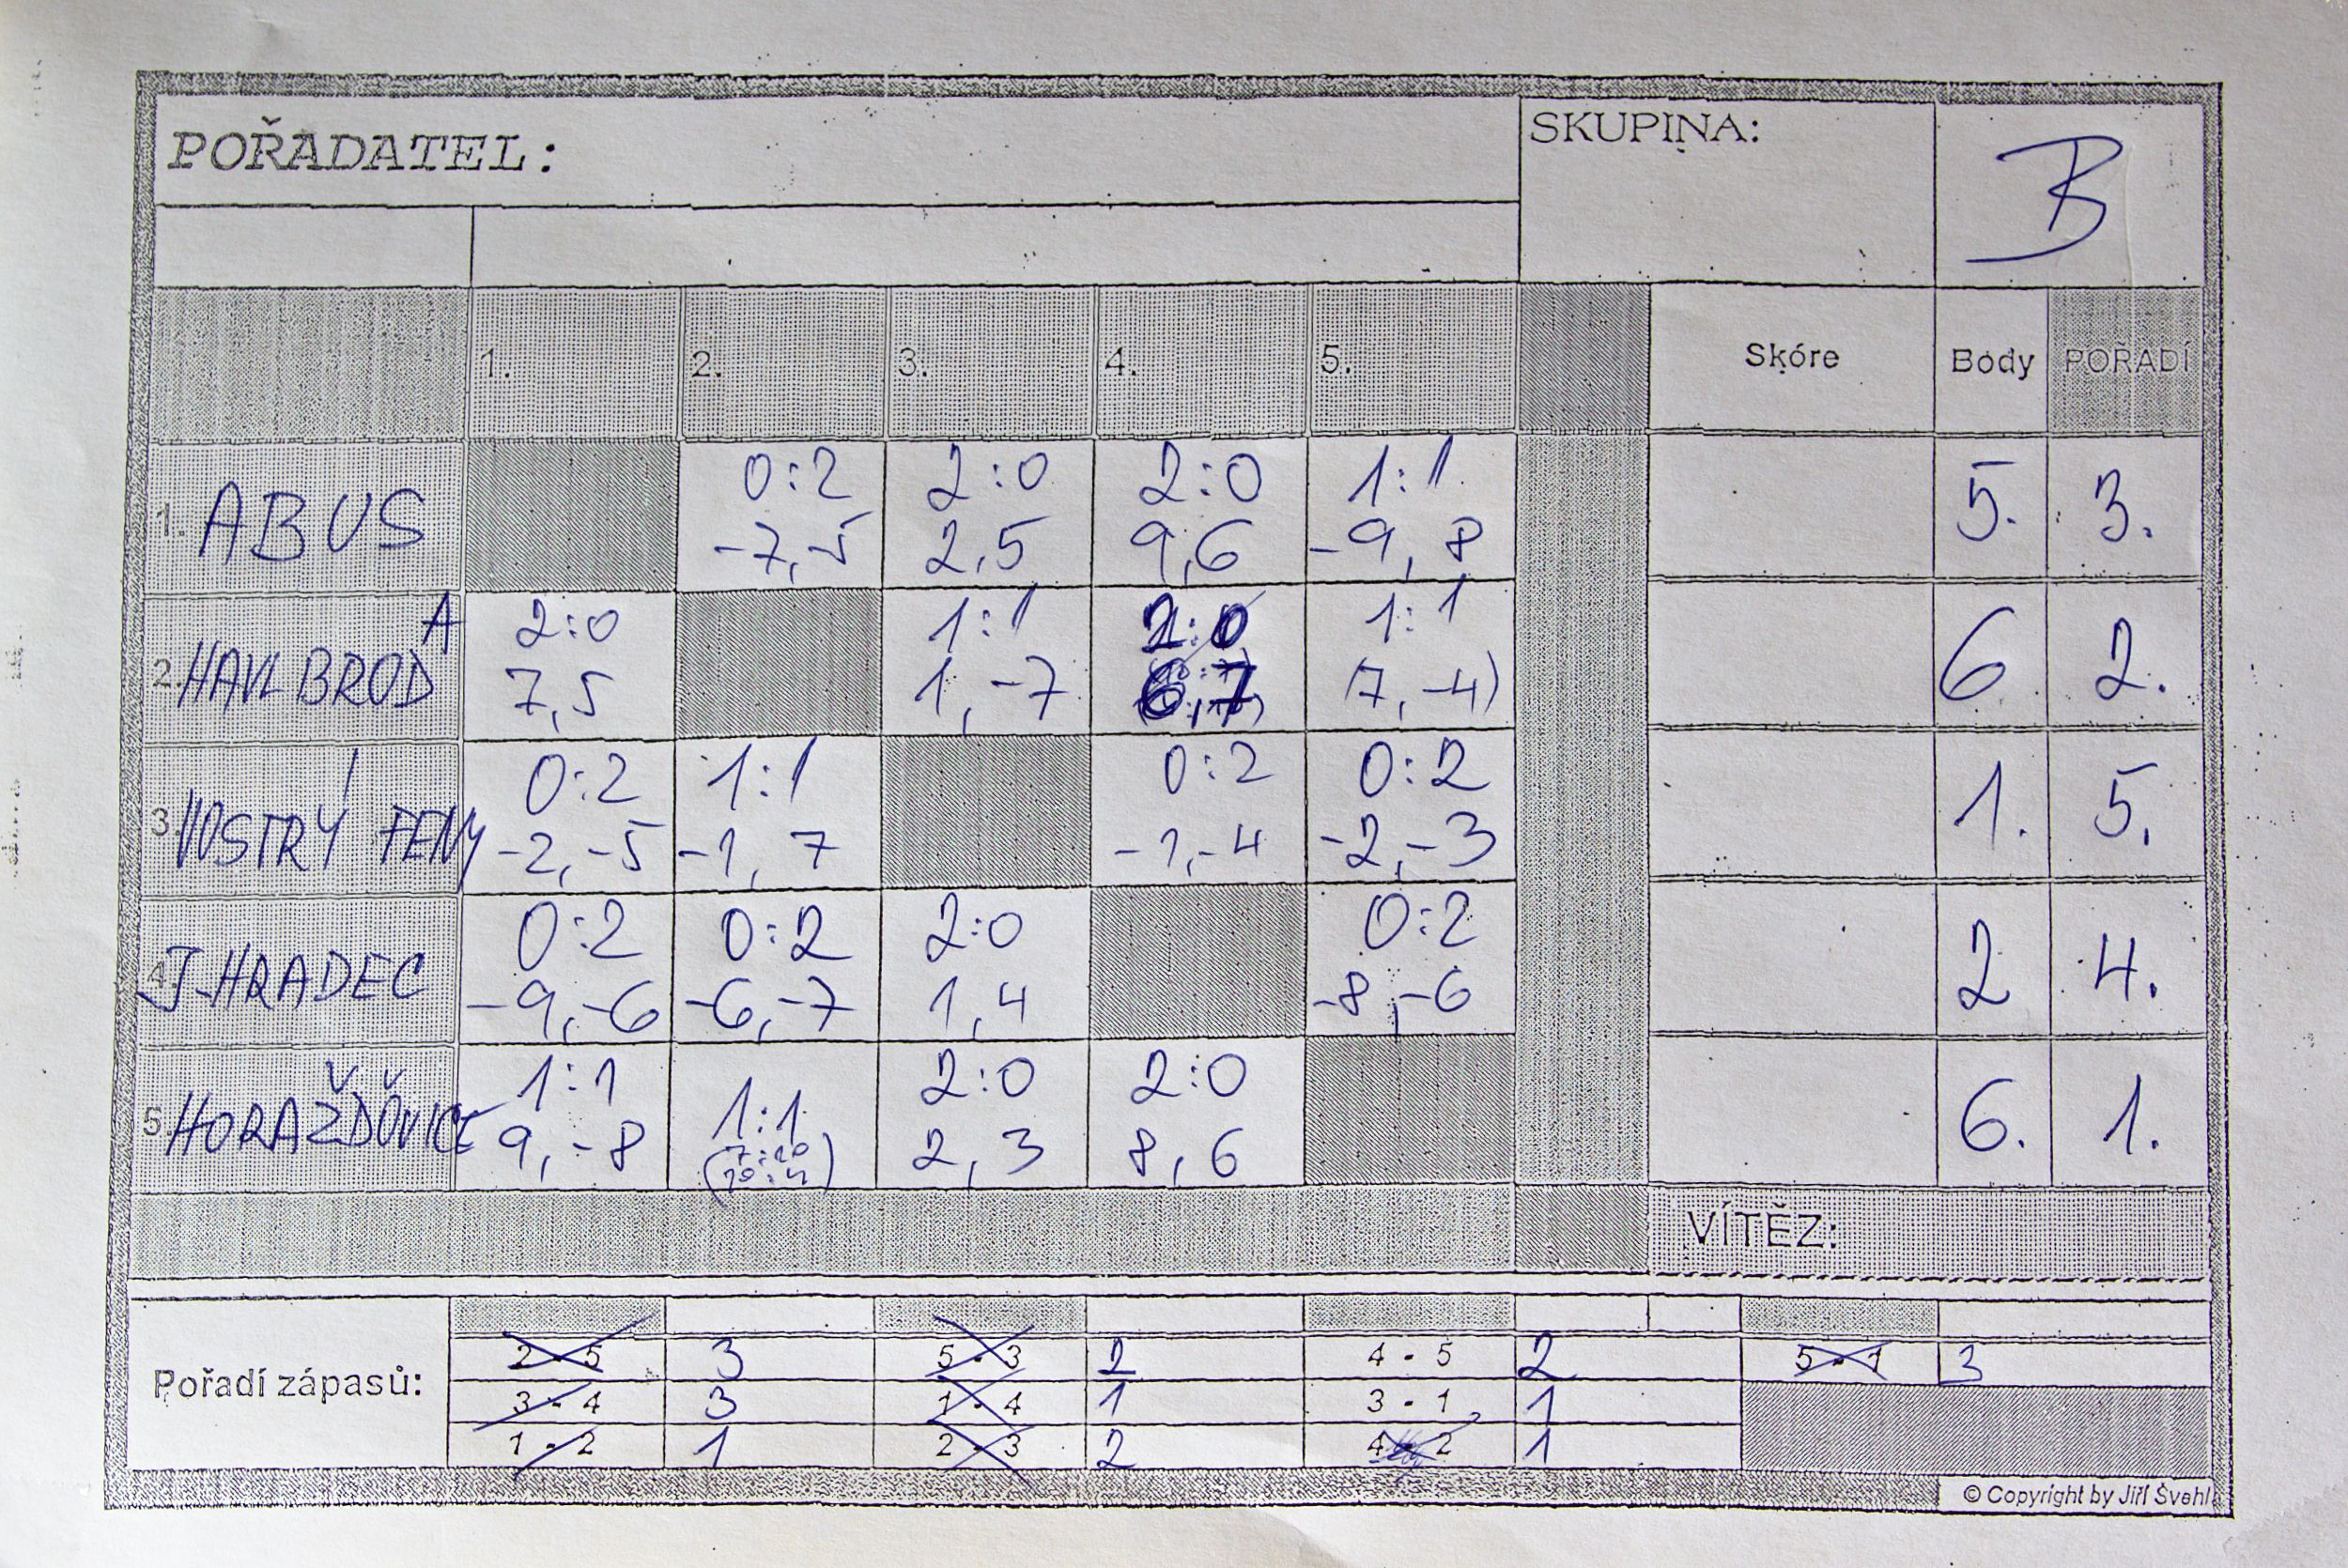 POŘADATEL:
SKUPINA:
B
1.
2.
3.
4.
5.
Skóre
Body
POŘADÍ
1. ABUS
0:2
2:0
2:0
1:1
-7,-5
2,5
9,6
-9, 8
5.
3.
2. HAVL BROD A
2:0
1:1
2:0
1:1
7,5
1, -7
6,7
(7, -4)
6
2.
3. VOSTRÝ FENY
0:2
1:1
0:2
0:2
-2,-5
-1, 7
-1,-4
-2,-3
1.
5.
4. J.HRADEC
0:2
0:2
2:0
0:2
-9,-6
-6,-7
1,4
-8,-6
2
4.
5. HORAŽĎOVICE
1:1
1:1
2:0
2:0
9,-8
(7:10
10:4)
2, 3
8, 6
6.
1.
VÍTĚZ:
Pořadí zápasů:
2 - 5 3 5 - 3 2 4 - 5 2 5 - 1 3
3 - 4 3 1 - 4 1 3 - 1 1
1 - 2 1 2 - 3 2 4 - 2 1
© Copyright by Jiří Švehl